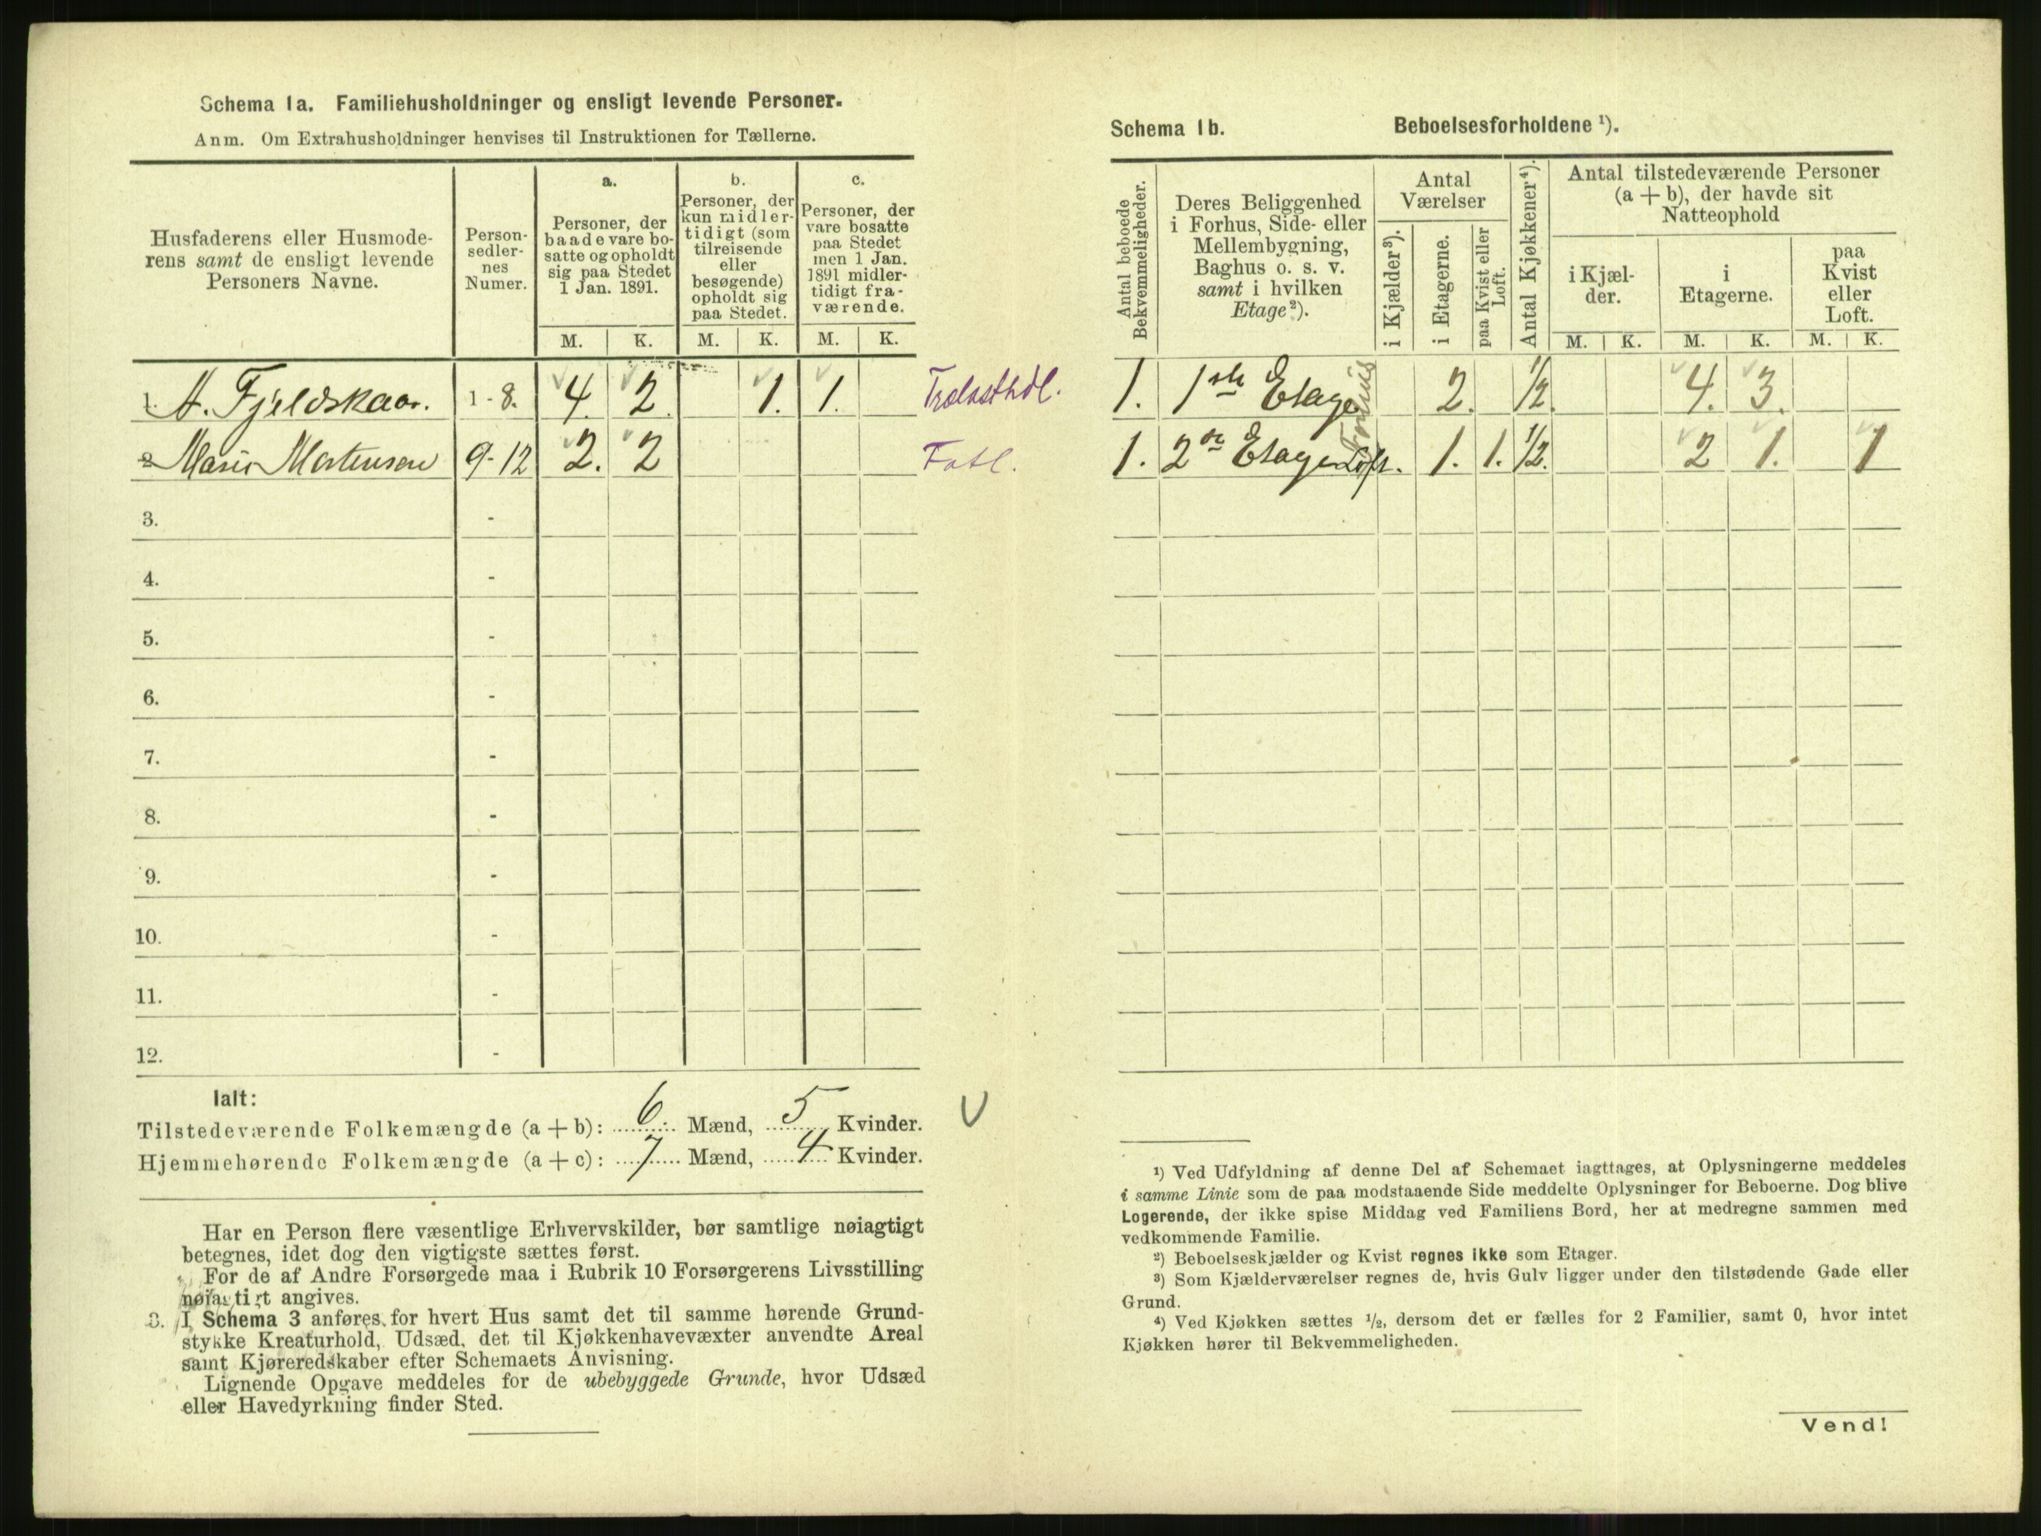 Schema 1a. Familiehusholdninger og ensligt levende Personer.
Anm. Om Extrahusholdninger henvises til Instruktionen for Tællerne.
Husfaderens eller Husmode-
rens samt de ensligt levende
Personers Navne.
Person-
sedler-
nes
Numer.
a.
Personer, der
baade vare bo-
satte og opholdt
sig paa Stedet
1 Jan. 1891.
b.
Personer, der
kun midler-
tidigt (som
tilreisende
eller
besøgende)
opholdt sig
paa Stedet.
c.
Personer, der
vare bosatte
paa Stedet
men 1 Jan.
1891 midler-
tidigt fra-
værende.
M. K. M. K. M. K.
1. A. Fjeldskaar. 1-8. 4. 2. 1. 1. Trælasthdl.
2 Marie Mortensen 9-12 2. 2 Fatl.
3. -
4. -
5. -
6. -
7. -
8. -
9. -
10. -
11. -
12. -
Ialt:
Tilstedeværende Folkemængde (a + b): 6 Mænd, 5 Kvinder.
Hjemmehørende Folkemængde (a + c): 7 Mænd, 4 Kvinder.
Har en Person flere væsentlige Erhvervskilder, bør samtlige nøiagtigt
betegnes, idet dog den vigtigste sættes først.
For de af Andre Forsørgede maa i Rubrik 10 Forsørgerens Livsstilling
nøiagtigt angives.
3. I Schema 3 anføres for hvert Hus samt det til samme hørende Grund-
stykke Kreaturhold, Udsæd, det til Kjøkkenhavevæxter anvendte Areal
samt Kjøreredskaber efter Schemaets Anvisning.
Lignende Opgave meddeles for de ubebyggede Grunde, hvor Udsæd
eller Havedyrkning finder Sted.
Schema 1b. Beboelsesforholdene ¹).
Antal beboede
Bekvemmeligheder.
Deres Beliggenhed
i Forhus, Side- eller
Mellembygning,
Baghus o. s. v.
samt i hvilken
Etage²).
Antal
Værelser
i Kjælder³).
i Etagerne.
paa Kvist eller
Loft.
Antal Kjøkkener⁴).
Antal tilstedeværende Personer
(a + b), der havde sit
Natteophold
i Kjæl-
der.
i
Etagerne.
paa
Kvist
eller
Loft.
M. K. M. K. M. K.
1. 1ste Etage Forhus 2. 1/2. 4. 3.
1. 2den Etage Loft. 1. 1. 1/2. 2 1. 1
¹) Ved Udfyldning af denne Del af Schemaet iagttages, at Oplysningerne meddeles
i samme Linie som de paa modstaaende Side meddelte Oplysninger for Beboerne. Dog blive
Logerende, der ikke spise Middag ved Familiens Bord, her at medregne sammen med
vedkommende Familie.
²) Beboelseskjælder og Kvist regnes ikke som Etager.
³) Som Kjælderværelser regnes de, hvis Gulv ligger under den tilstødende Gade eller
Grund.
⁴) Ved Kjøkken sættes ½, dersom det er fælles for 2 Familier, samt 0, hvor intet
Kjøkken hører til Bekvemmeligheden.
Vend!